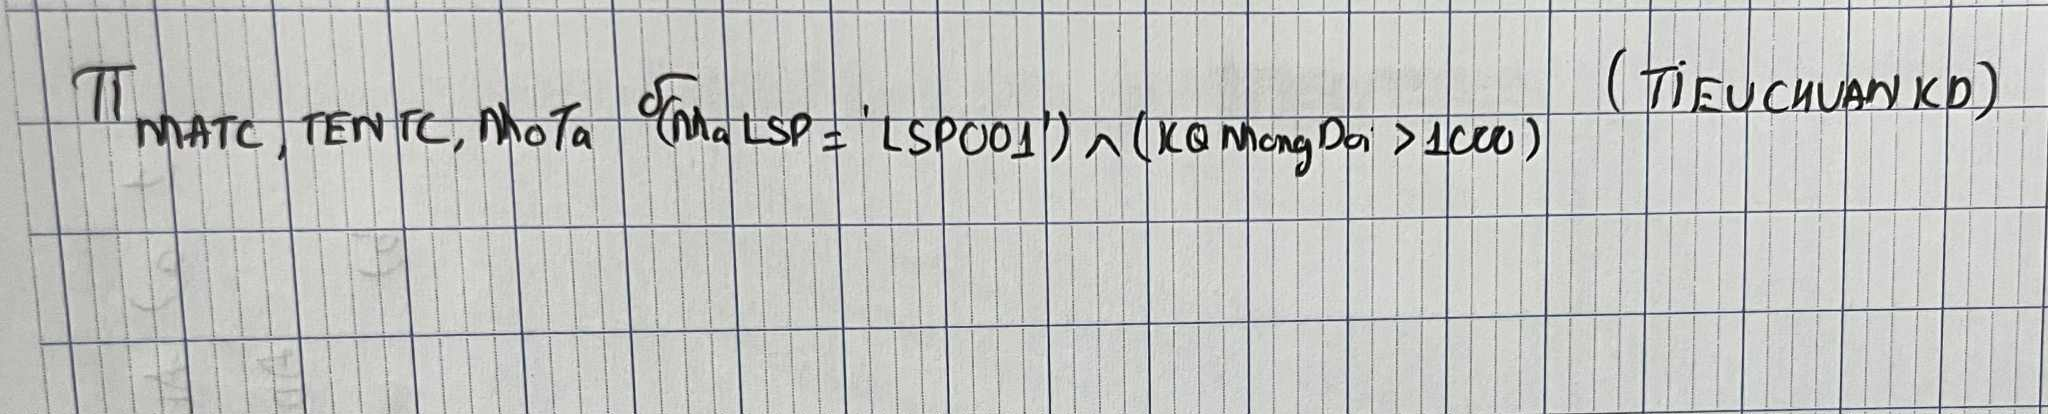 π MATC, TENTC, MoTa σ(MaLSP = 'LSP001') ∧ (KQMongDoi > 1000) (TiEUCHUANKD)